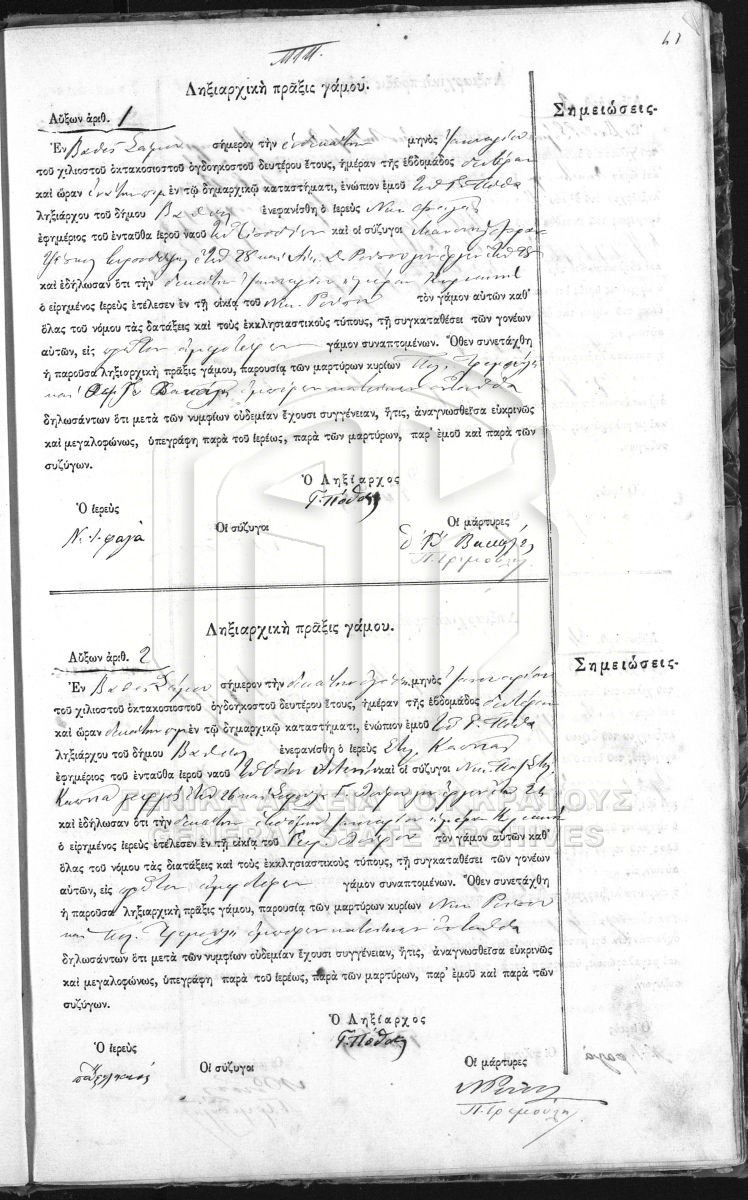 61
Ληξιαρχικὴ πρᾶξις γάμου.
Σημειώσεις-
Αὔξων ἀριθ. 1
Ἐν Βαθεῖ Σάμου σήμερον τὴν ἑνδεκάτην μηνὸς Ἰανουαρίου
τοῦ χιλιοστοῦ ὀκτακοσιοστοῦ ὀγδοηκοστοῦ δευτέρου ἔτους, ἡμέραν τῆς ἑβδομάδος δευτέραν
καὶ ὥραν ἐνάτην πμ ἐν τῷ δημαρχικῷ καταστήματι, ἐνώπιον ἐμοῦ τοῦ Γ. Πόθα
ληξιάρχου τοῦ δήμου Βαθέος ἐνεφανίσθη ὁ ἱερεὺς Νικ.
ἐφημέριος τοῦ ἐνταῦθα ἱεροῦ ναοῦ καὶ οἱ σύζυγοι
ἐτῶν 28 καὶ ἐτῶν 28
καὶ ἐδήλωσαν ὅτι τὴν δεκάτην Ἰανουαρίου ἡμέραν Κυριακὴν
ὁ εἰρημένος ἱερεὺς ἐτέλεσεν ἐν τῇ οἰκίᾳ τοῦ Νικ. τὸν γάμον αὐτῶν καθ᾽
ὅλας τοῦ νόμου τὰς δατάξεις καὶ τοὺς ἐκκλησιαστικοὺς τύπους, τῇ συγκαταθέσει τῶν γονέων
αὐτῶν, εἰς πρῶτον ἀμφοτέρων γάμον συναπτομένων. Ὅθεν συνετάχθη
ἡ παροῦσα ληξιαρχικὴ πρᾶξις γάμου, παρουσίᾳ τῶν μαρτύρων κυρίων Πολ. Τρεμούλη
καὶ Βακάλη ἀμφοτέρων κατοίκων ἐνταῦθα
δηλωσάντων ὅτι μετὰ τῶν νυμφίων οὐδεμίαν ἔχουσι συγγένειαν, ἥτις, ἀναγνωσθεῖσα εὐκρινῶς
καὶ μεγαλοφώνως, ὑπεγράφη παρὰ τοῦ ἱερέως, παρὰ τῶν μαρτύρων, παρ᾽ ἐμοῦ καὶ παρὰ τῶν
συζύγων.
Ὁ Ληξίαρχος
Γ. Πόθας
Ὁ ἱερεὺς
Οἱ σύζυγοι
Οἱ μάρτυρες
Βακάλης
Π. Τρεμούλης
Ληξιαρχικὴ πρᾶξις γάμου.
Σημειώσεις-
Αὔξων ἀριθ. 2
Ἐν Βαθεῖ Σάμου σήμερον τὴν δεκάτην ὀγδόην μηνὸς Ἰανουαρίου
τοῦ χιλιοστοῦ ὀκτακοσιοστοῦ ὀγδοηκοστοῦ δευτέρου ἔτους, ἡμέραν τῆς ἑβδομάδος δευτέραν
καὶ ὥραν δεκάτην πμ ἐν τῷ δημαρχικῷ καταστήματι, ἐνώπιον ἐμοῦ τοῦ Γ. Πόθα
ληξιάρχου τοῦ δήμου Βαθέος ἐνεφανίσθη ὁ ἱερεὺς
ἐφημέριος τοῦ ἐνταῦθα ἱεροῦ ναοῦ καὶ οἱ σύζυγοι Νικ.
ἐτῶν 26 καὶ
καὶ ἐδήλωσαν ὅτι τὴν δεκάτην Ἰανουαρίου ἡμέραν Κυριακὴν
ὁ εἰρημένος ἱερεὺς ἐτέλεσεν ἐν τῇ οἰκίᾳ τοῦ τὸν γάμον αὐτῶν καθ᾽
ὅλας τοῦ νόμου τὰς διατάξεις καὶ τοὺς ἐκκλησιαστικοὺς τύπους, τῇ συγκαταθέσει τῶν γονέων
αὐτῶν, εἰς πρῶτον ἀμφοτέρων γάμον συναπτομένων. Ὅθεν συνετάχθη
ἡ παροῦσα ληξιαρχικὴ πρᾶξις γάμου, παρουσίᾳ τῶν μαρτύρων κυρίων Νικ.
καὶ Πολ. Τρεμούλη ἀμφοτέρων κατοίκων ἐνταῦθα
δηλωσάντων ὅτι μετὰ τῶν νυμφίων οὐδεμίαν ἔχουσι συγγένειαν, ἥτις, ἀναγνωσθεῖσα εὐκρινῶς
καὶ μεγαλοφώνως, ὑπεγράφη παρὰ τοῦ ἱερέως, παρὰ τῶν μαρτύρων, παρ᾽ ἐμοῦ καὶ παρὰ τῶν
συζύγων.
Ὁ Ληξίαρχος
Γ. Πόθας
Ὁ ἱερεὺς
Οἱ σύζυγοι
Οἱ μάρτυρες
Π. Τρεμούλης
ΓΕΝΙΚΑ ΑΡΧΕΙΑ ΤΟΥ ΚΡΑΤΟΥΣ
GENERAL STATE ARCHIVES